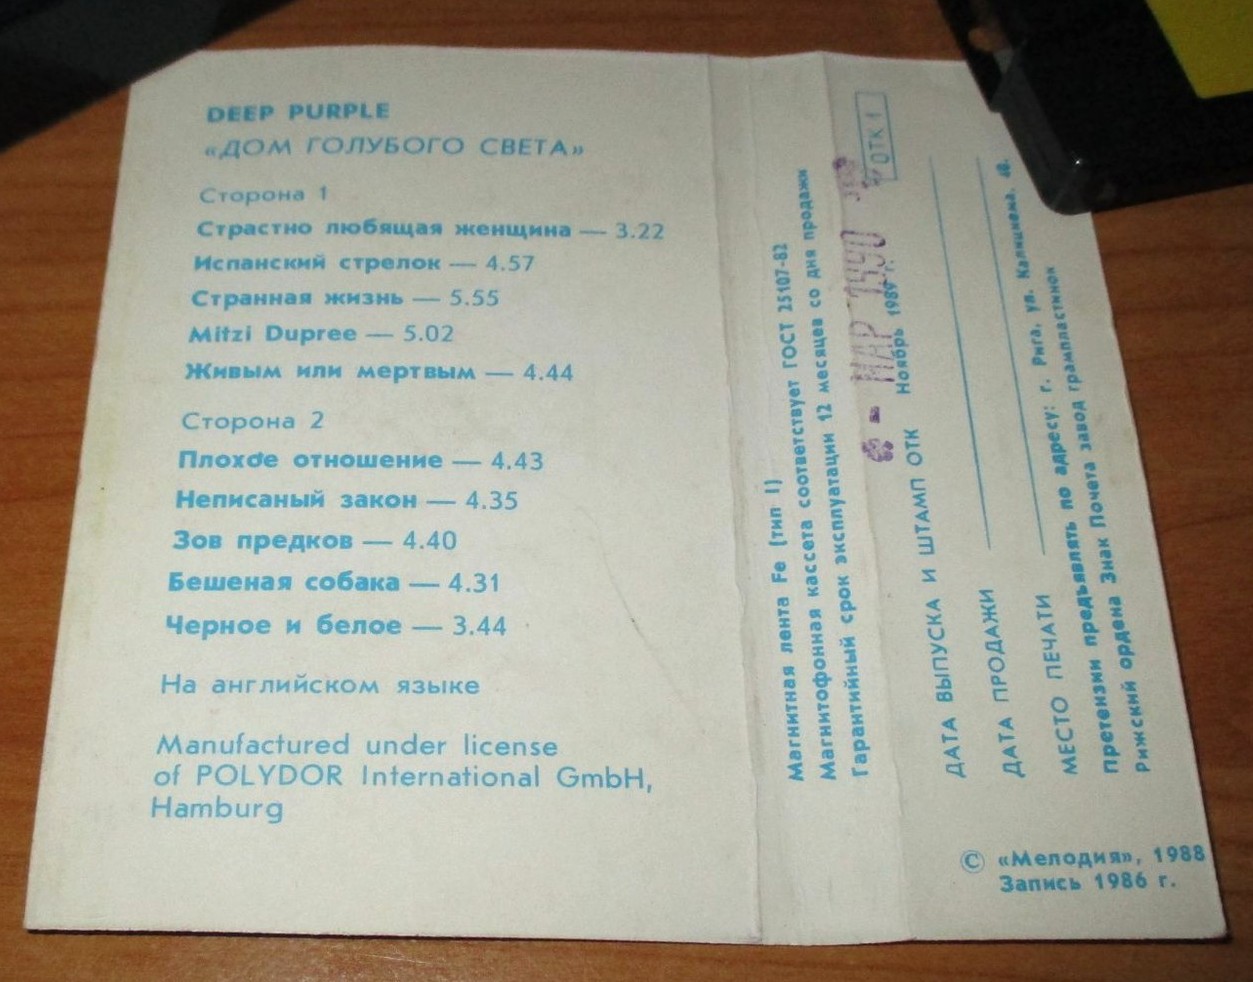 DEEP PURPLE
«ДОМ ГОЛУБОГО СВЕТА»
Сторона 1
Страстно любящая женщина — 3.22
Испанский стрелок — 4.57
Странная жизнь — 5.55
Mitzi Dupree — 5.02
Живым или мертвым — 4.44
Сторона 2
Плохое отношение — 4.43
Неписаный закон — 4.35
Зов предков — 4.40
Бешеная собака — 4.31
Черное и белое — 3.44
На английском языке
Manufactured under license
of POLYDOR International GmbH,
Hamburg
Магнитная лента Fe (тип I)
Магнитофонная кассета соответствует ГОСТ 25107-82
Гарантийный срок эксплуатации 12 месяцев со дня продажи
6 - МАР 1990
ОТК 1
Ноябрь 1989 г.
ДАТА ВЫПУСКА И ШТАМП ОТК
ДАТА ПРОДАЖИ
МЕСТО ПЕЧАТИ
Претензии предъявлять по адресу: г. Рига, ул. Калнциема, 40.
Рижский ордена Знак Почета завод грампластинок
© «Мелодия», 1988
Запись 1986 г.